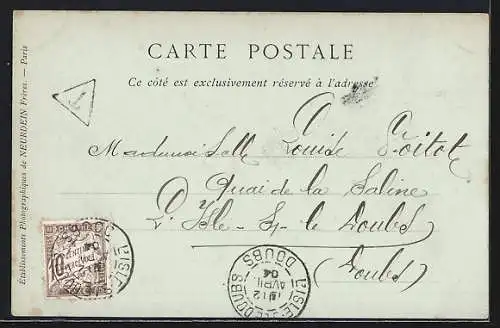 CARTE POSTALE
Ce côté est exclusivement réservé à l'adresse
T
Mademoiselle Louise
Quai de la Saline
L'Isle-s-le Doubs
(Doubs)
Établissements Photographiques de NEURDEIN Frères. — Paris
10
CENTIMES
L'ISLE
L'ISLE-S-LE-DOUBS
12
AVRIL
04
DOUBS